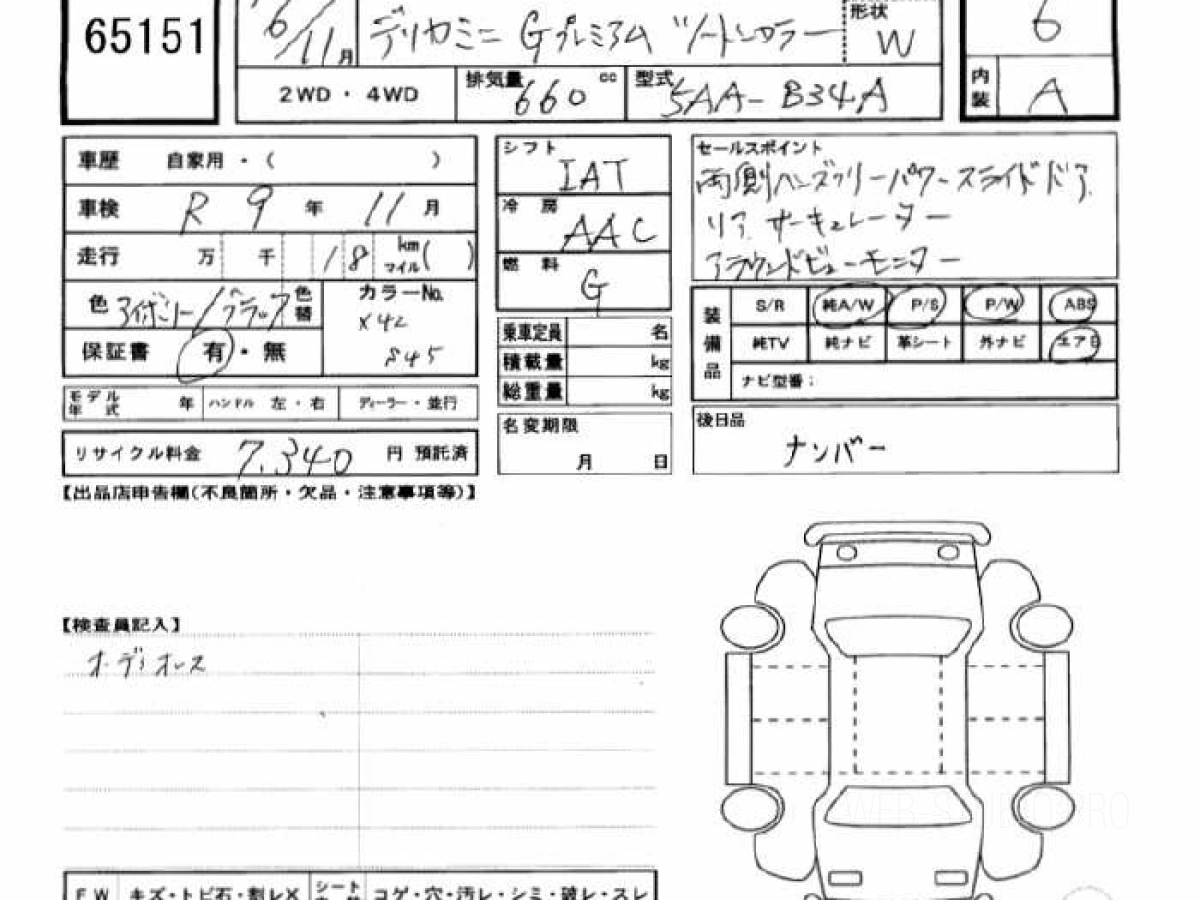 65151
6/11月
デリカミニ Gプレミアム ツートンカラー
形状 W
6
2WD・4WD
排気量 660 cc
型式 5AA-B34A
内装 A
車歴 自家用・( )
車検 R 9 年 11 月
走行 万 千 18 km マイル( )
色 アイボリー/ブラック 色替
カラーNo. X42 845
保証書 有・無
モデル年式 年 ハンドル 左・右 ディーラー・並行
リサイクル料金 7,340 円 預託済
シフト IAT
冷房 AAC
燃料 G
乗車定員 名
積載量 kg
総重量 kg
名変期限
月 日
セールスポイント
両側ハンズフリーパワースライドドア
リアサーキュレーター
アラウンドビューモニター
装備品
S/R 純A/W P/S P/W ABS
純TV 純ナビ 革シート 外ナビ エアB
ナビ型番：
後日品
ナンバー
【出品店申告欄(不良箇所・欠品・注意事項等)】
【検査員記入】
オーディオレス
FW キズ・トビ石・割レX シート コゲ・穴・汚レ・シミ・破レ・スレ